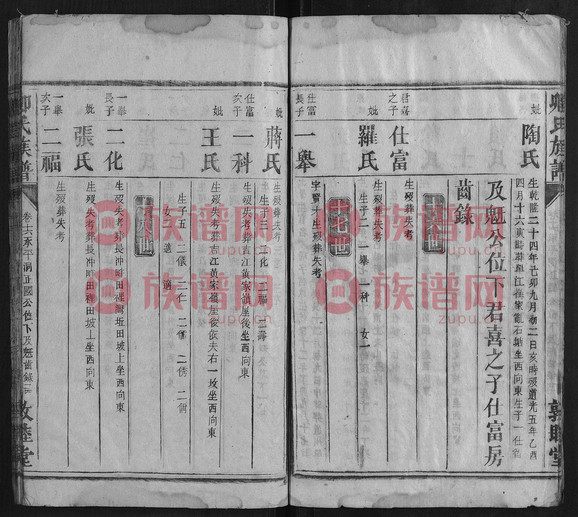 卿氏族譜
敦睦堂
妣
陶氏
生乾隆二十四年己卯九月初二日亥時歿道光五年乙酉
四月十六
坐西向東生子一仕富
及魁公位下君喜之子仕富房
齒錄
君嘉
之子
仕富
生歿葬失考
妣
羅氏
生歿葬失考
生子二 一舉 一科 女一
十七世
仕富
長子
一舉
字賢才生歿葬失考
妣
蔣氏
生歿葬失考
生子三 二化 二福 二壽
仕富
次子
一科
生歿失考葬吉江黃家嶺屋後坐西向東
妣
王氏
生歿失考葬吉江黃家嶺屋後依夫右一坟坐西向東
生子五 二儀 二仁 二僑 二
女一適
一舉
長子
二化
生歿失考葬長沖
田坡上坐西向東
妣
張氏
生歿失考葬長沖
田坡上坐西向東
一舉
次子
二福
生歿葬失考
卿氏族譜
公位下及魁齒錄
敦睦堂
族谱网
zupu.cn